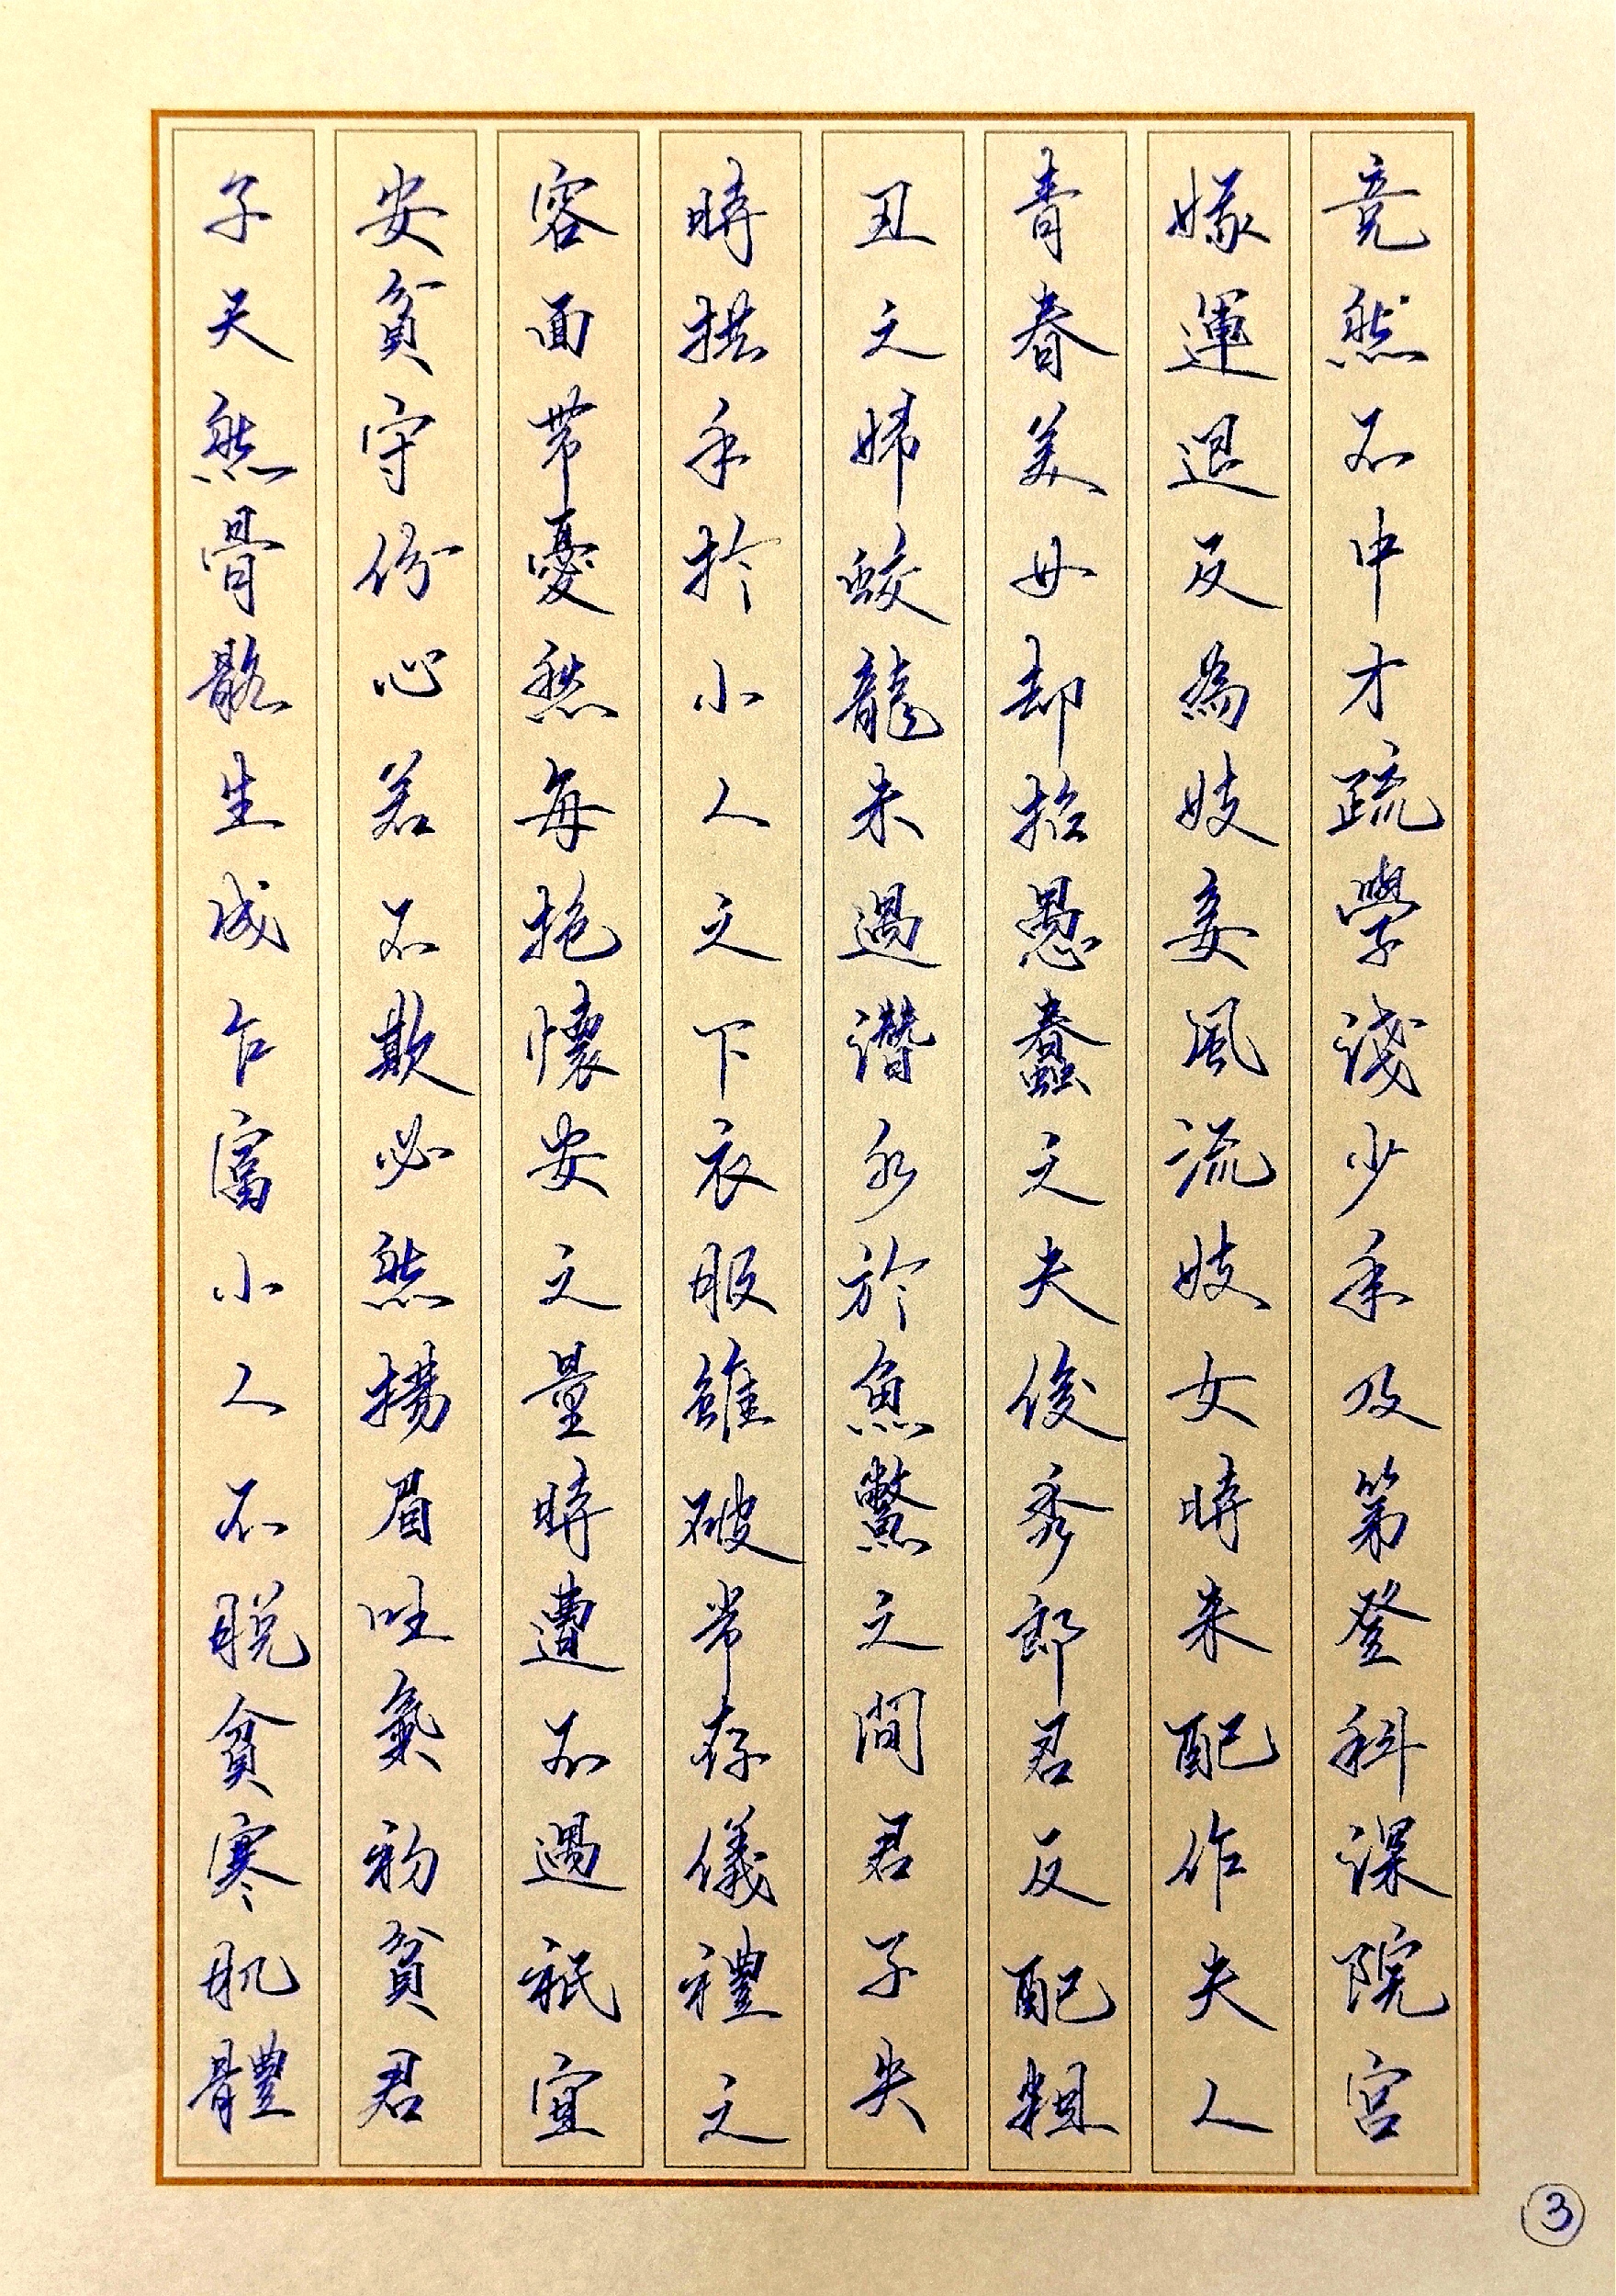 竟然不中才疏學淺少年及第登科深院宮
娥運退反為妓妾風流妓女時來配作夫人
青春美女却招愚蠢之夫俊秀郎君反配粗
丑之婦蛟龍未遇潛水於魚鱉之間君子失
時拱手於小人之下衣服雖破常存儀禮之
容面帶憂愁每抱懷安之量時遭不遇祇宜
安貧守份心若不欺必然揚眉吐氣初貧君
子天然骨骼生成乍富小人不脫貧寒肌體
3